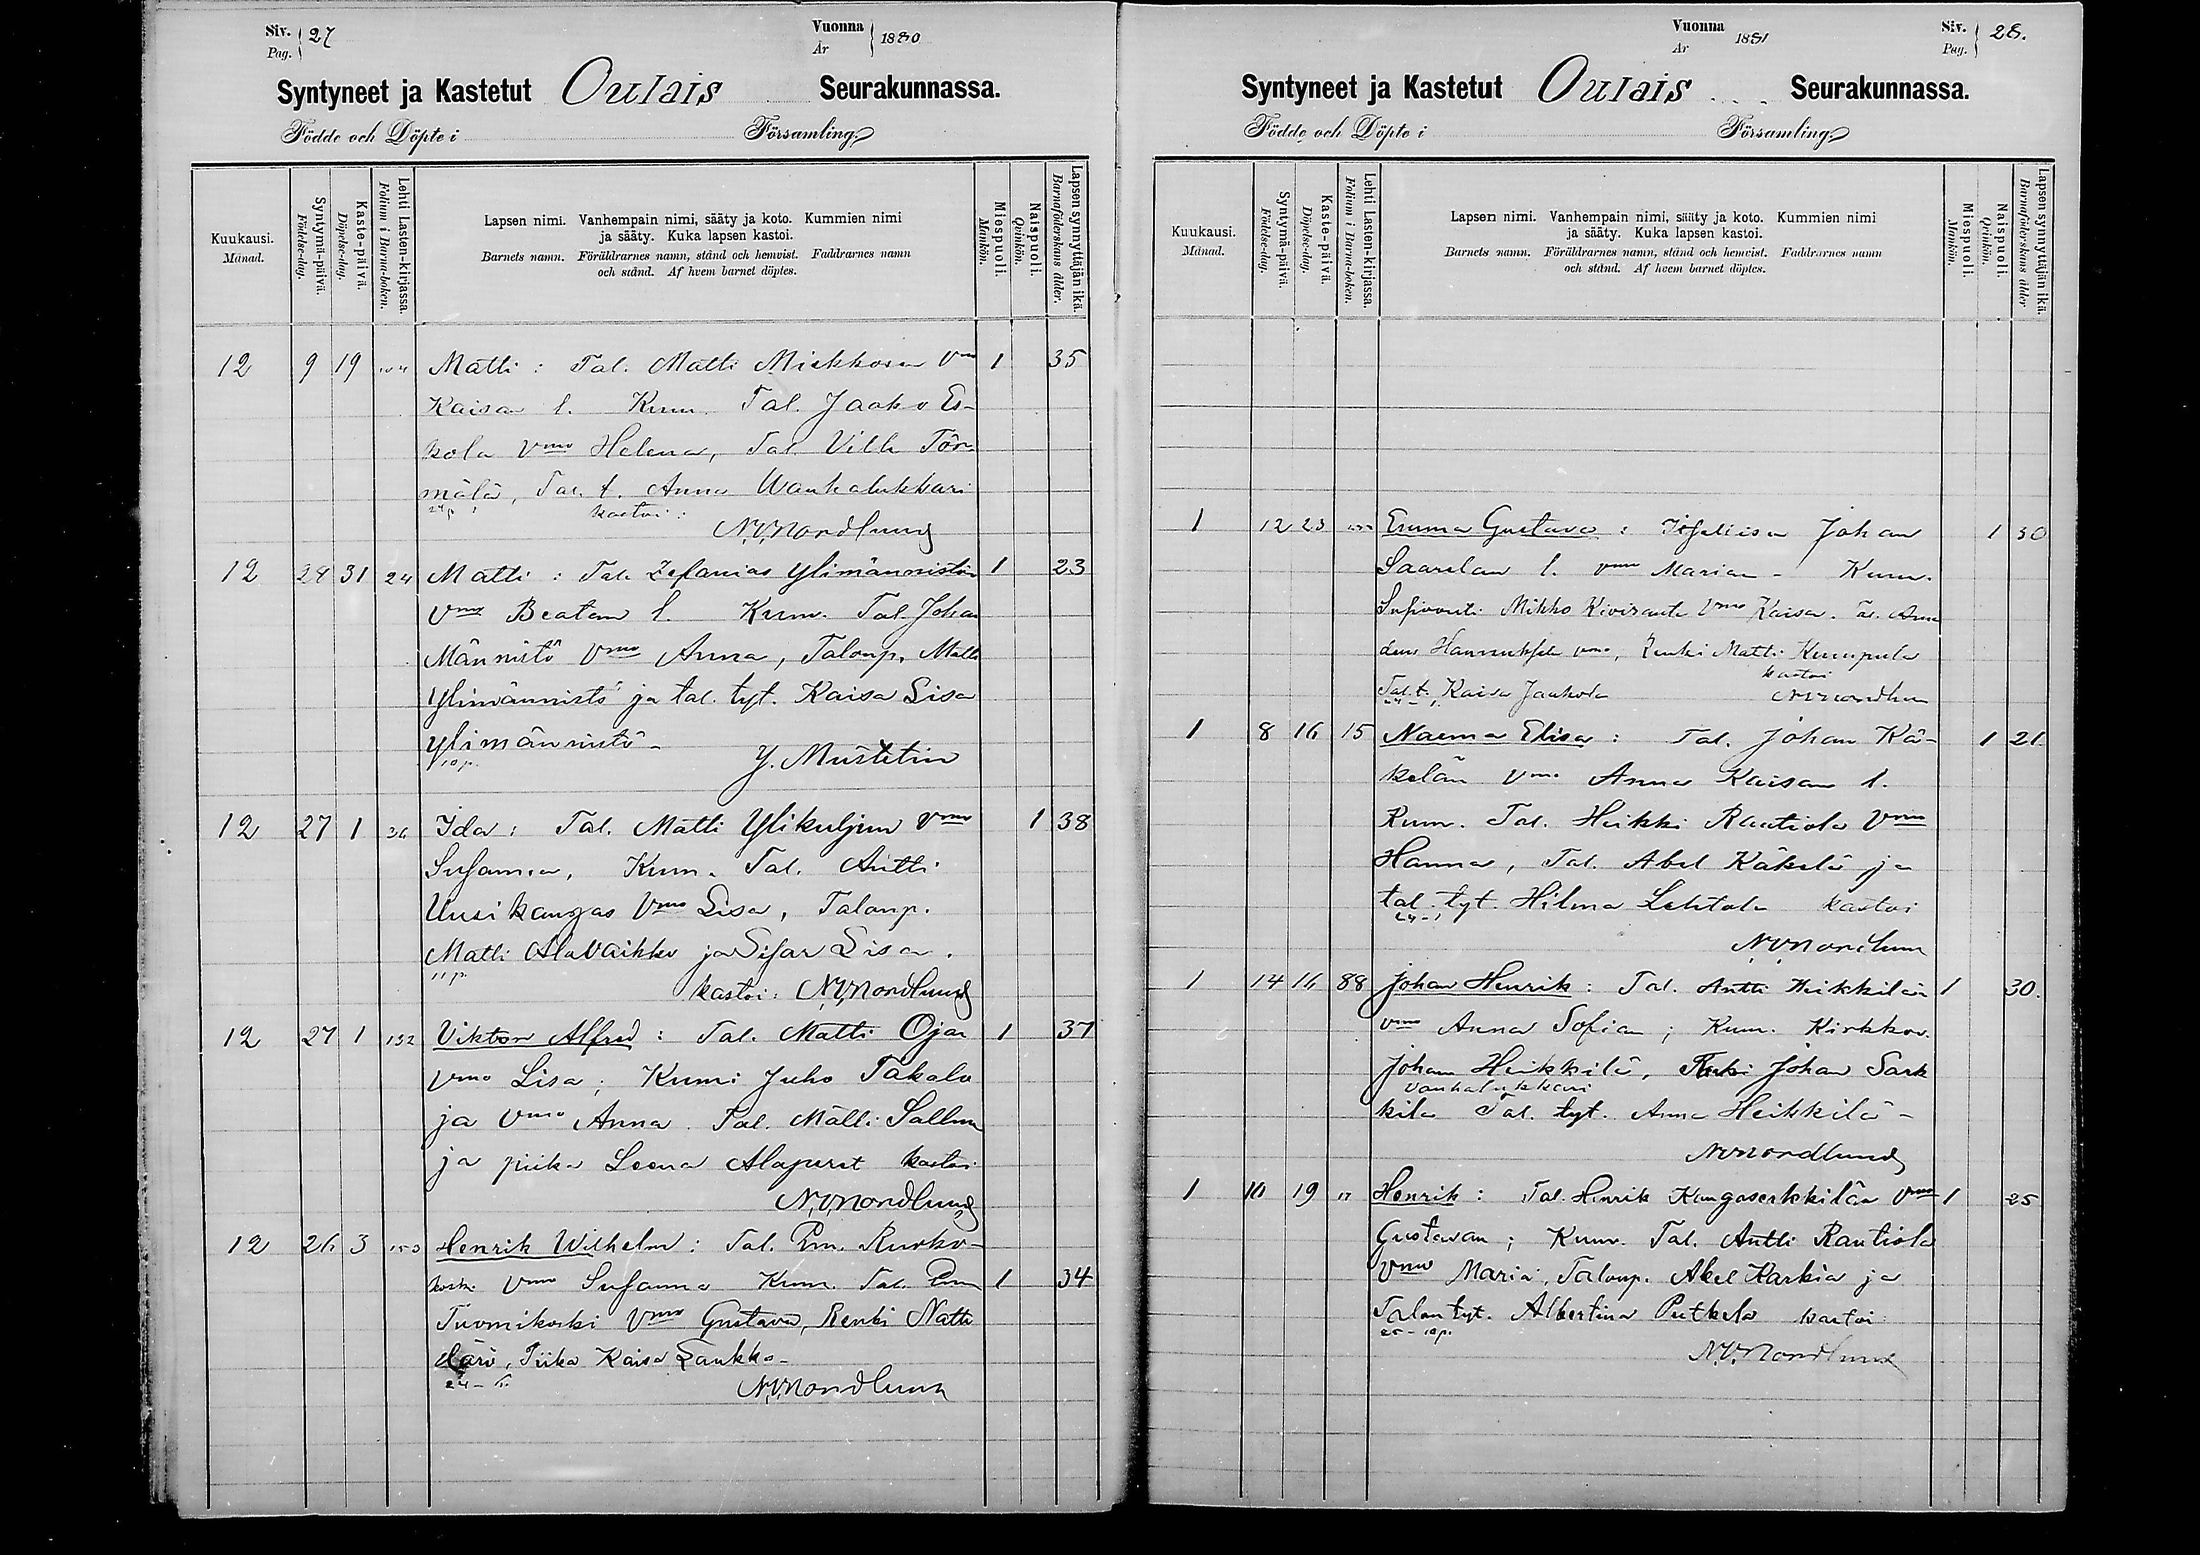 Siv. 27
Pag.
Vuonna 1880
År
Syntyneet ja Kastetut Oulais Seurakunnassa.
Födde och Döpte i Församling
Kuukausi.
Månad.
Syntymä-päivä.
Födelse-dag.
Kaste-päivä.
Döpelse-dag.
Lehti Lasten-kirjassa.
Folium i Barna-boken.
Lapsen nimi. Vanhempain nimi, sääty ja koto. Kummien nimi
ja sääty. Kuka lapsen kastoi.
Barnets namn. Föräldrarnes namn, stånd och hemvist. Faddrarnes namn
och stånd. Af hvem barnet döptes.
Miespuoli.
Mankön.
Naispuoli.
Qvinkön.
Lapsen synnyttäjän ikä.
Barnaföderskans ålder.
12 9 19 Matti: Tal. Matti Miekkosen Vmo 1 35
Kaisan l. Kum. Tal. Jaako Es-
kola Vmo Helena, Tal. Vilh. Tör-
mälä, Tal. t. Anna Wanhalukkari
kastoi:
N.V. Nordlund
12 29 31 24 Matti: Tal. Zefanias Ylimänniston 1 23
Vmo Beatan l. Kum. Tal. Johan
Männistö Vmo Anna, Taloup. Matti
Ylimännistö ja tal. tyt. Kaisa Lisa
Ylimännistö-
10 p. Y. Mustetin
12 27 1 36 Ida: Tal. Matti Ylikuljun Vmo 1 38
Susanna, Kum. Tal. Antti
Uusikangas Vmo Lisa, Taloup.
Matti Alavaikko ja Sisar Lisa.
11 p.
kastoi: N.V. Nordlund
12 27 1 132 Viktor Alfred: Tal. Matti Ojan 1 37
Vmo Lisa; Kumi Juho Takalo
ja Vmo Anna. Tal. Matti Sallinen
ja piika Leena Alapuret kastoi
N.V. Nordlund
12 26 3 153 Henrik Wilhelm: Tal. Em. Kurko-
koski Vmo Susanna Kum. Tal. Em 1 34
Tuomikoski Vmo Gustava, Renki Matti
Piika Kaisa Laukko-
N.V. Nordlund
Vuonna 1881
År
Siv. 28.
Pag.
Syntyneet ja Kastetut Oulais Seurakunnassa.
Födde och Döpte i Församling
Kuukausi.
Månad.
Syntymä-päivä.
Födelse-dag.
Kaste-päivä.
Döpelse-dag.
Lehti Lasten-kirjassa.
Folium i Barna-boken.
Lapsen nimi. Vanhempain nimi, sääty ja koto. Kummien nimi
ja sääty. Kuka lapsen kastoi.
Barnets namn. Föräldrarnes namn, stånd och hemvist. Faddrarnes namn
och stånd. Af hvem barnet döptes.
Miespuoli.
Mankön.
Naispuoli.
Qvinkön.
Lapsen synnyttäjän ikä.
Barnaföderskans ålder
1 12 23 Emma Gustava: Itsellisen Johan 1 30
Saarelan l. vmo Marian- Kum.
Mikko Kiviranta Vmo Kaisa. Tal.
vmo, Renki Matti Kumpula
kastoi
Tal. t. Kaisa Jaukola N.V. Nordlun
1 8 16 15 Naema Elisa: Tal. Johan Kä- 1 21
kelän Vmo Anna Kaisan l.
Kum. Tal. Heikki Rautiola Vmo
Hanna, Tal. Abel Käkelä ja
tal. tyt. Hilma Lehtola kastoi
N.V. Nordlun
1 14 16 88 Johan Henrik: Tal. Antti Heikkilän 1 30.
vmo Anna Sofian; Kum. Kirkkov.
Johan Heikkilä, Renki Johan Sark
Vanhalukkari
kila Tal. tyt. Anna Heikkilä-
N.V. Nordlund
1 10 19 17 Henrik: Tal. Henrik Kangaserkkilän Vmo 1 25
Gustavan; Kum. Tal. Antti Rautiola
Vmo Maria, Taloup. Abel Karkia ja
Talon tyt. Albertina Putkela kastoi
N.V. Nordlund